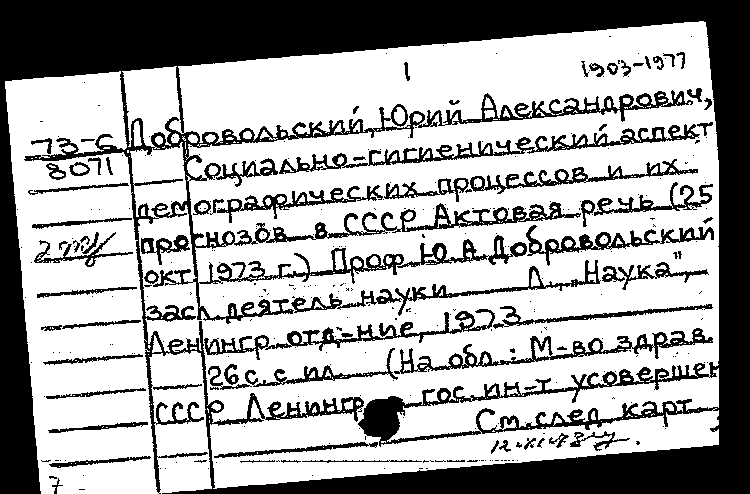 1
1903-1977
73-6
8071
Добровольский, Юрий Александрович,
Социально-гигиенический аспект
демографических процессов и их
прогнозов в СССР Актовая речь (25
окт. 1973 г.) Проф Ю. А. Добровольский
засл. деятель науки Л., "Наука",
Ленингр. отд-ние, 1973
26 с. с ил. (На обл.: М-во здрав.
СССР Ленингр гос. ин-т усовершен
См. след карт
7